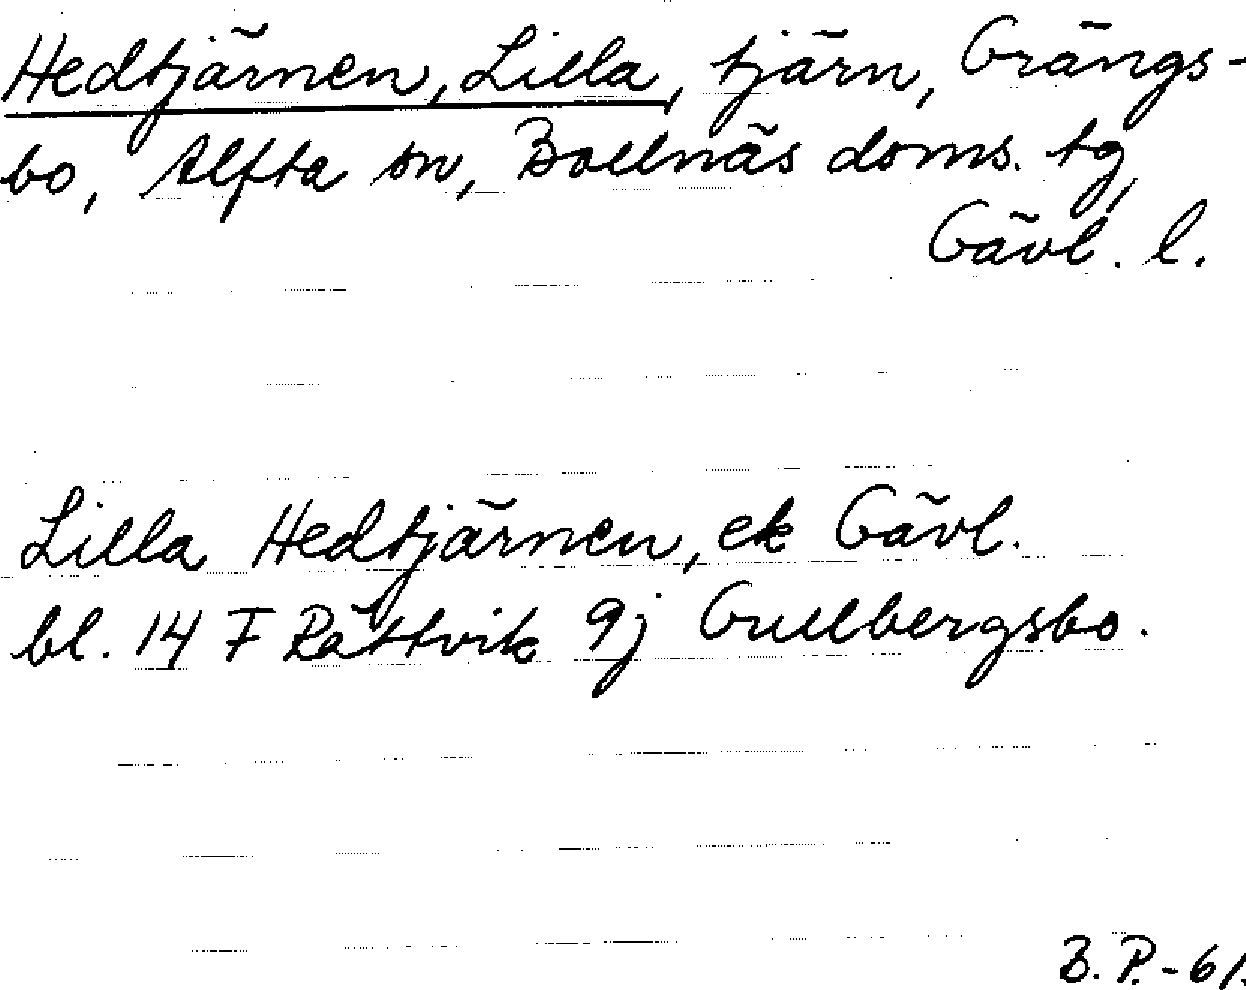 Hedtjärnen, Lilla, tjärn, Grängs-
bo, Alfta sn, Bollnäs doms. tg,
Gävl. l.
Lilla Hedtjärnen, ek Gävl.
bl. 14 F Rättvik 9j Gullbergsbo.
B.P.-61.